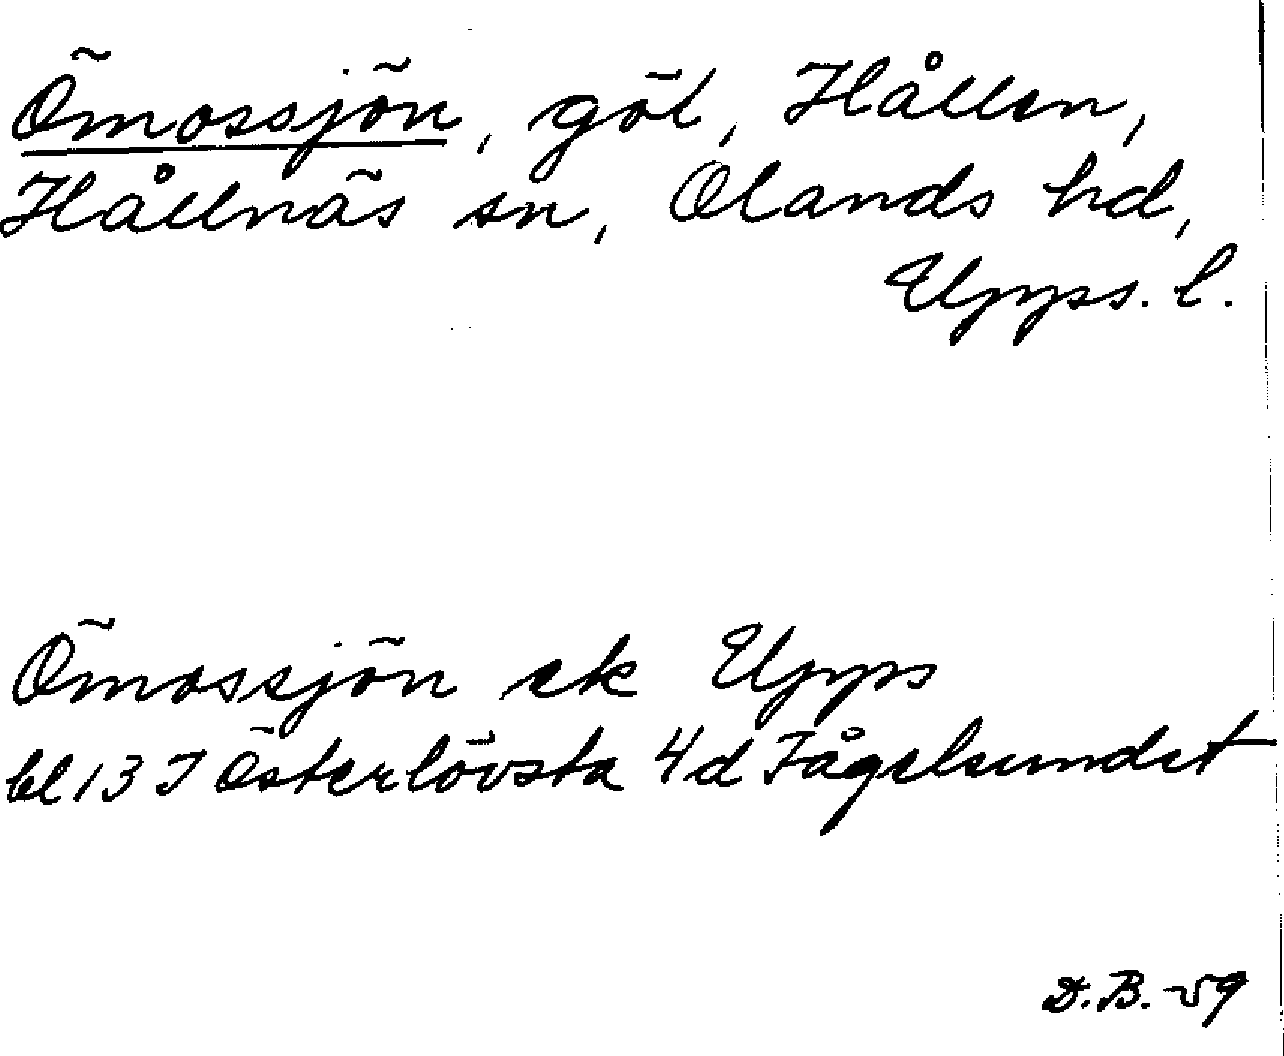 Ömossjön, göl, Hållen,
Hållnäs sn, Olands hd,
Upps. l.
Ömossjön ek Upps
bl 13 I Österlövsta 4d Fågelsundet
D.B. -59